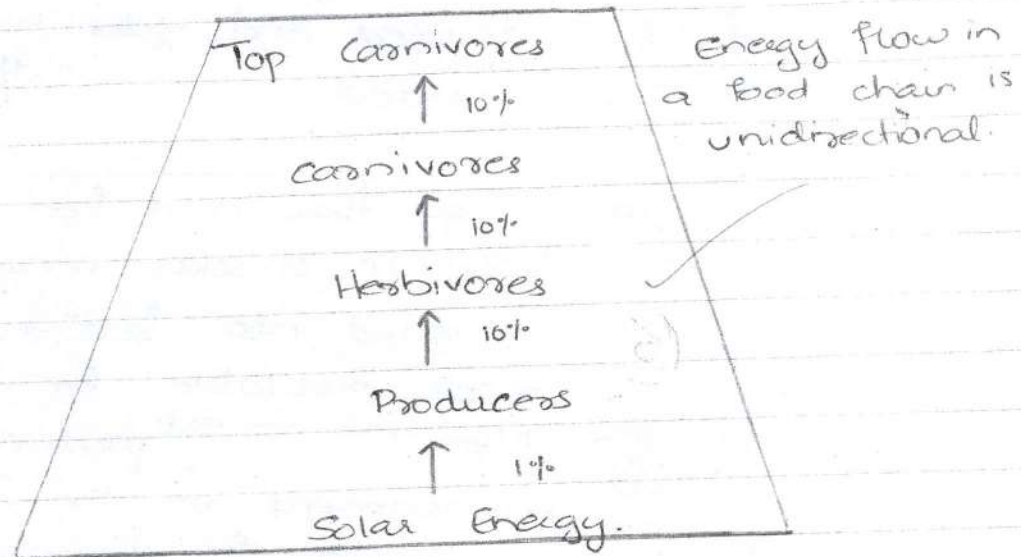 Top Carnivores
10%
carnivores
10%
Herbivores
10%
Producers
1%
Solar Energy.
Energy flow in
a food chain is
unidirectional.